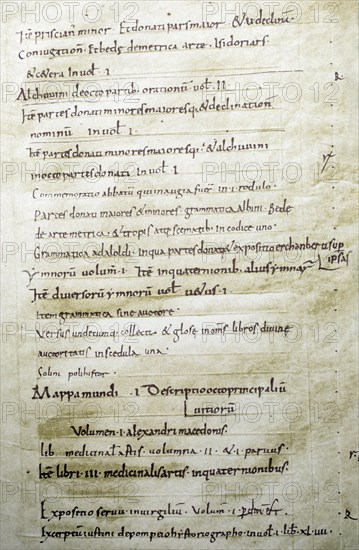 Itē priscian minor. Et donati pars maior. & u declinū
Coniugation. Et bedę demetrica arte. Isidori ars.
& cetera In vol. I
Alchuuini de octo partib. orationū vol. II
Itē partes donati minores maioresq; & declination
nominū In vol. I.
Itē partes donati minores maioresq;. & alchuuini
in octo partes donati. In vol. I
Commemoratio abbatū qui in augia fuer. in. I. rodulo.
Partes donati maiores & minores. grammatica Albini. Bede
de arte metrica. & tropis atq; scematib. in codice uno.
Grammatica adaloldi. In qua partes donati & expositio erchanberti sup
ipsas
ymnorū volum. I. Itē in quaternionib. alius ymnar
Itē diuersorū ymnorū vol. I.
Item grammatica sine auctore.
Versus undecunq; collecti & glose in oms libros diuine
auctoritatis in scedula una.
Solini polihistor.
Mappa mundi . I . Descriptio octo principaliū
uitiorū
Volumen. I. alexandri macedonis.
lib. medicinal artis. volumina. II. & I. paruus.
Itē libri. III. medicinalis artis. in quaternionibus.
Expositio seruii. in uirgiliū. Volum. I.
Excerptū iustini de pompeio hystoriographo. in vol. I. lib. XL IIII.